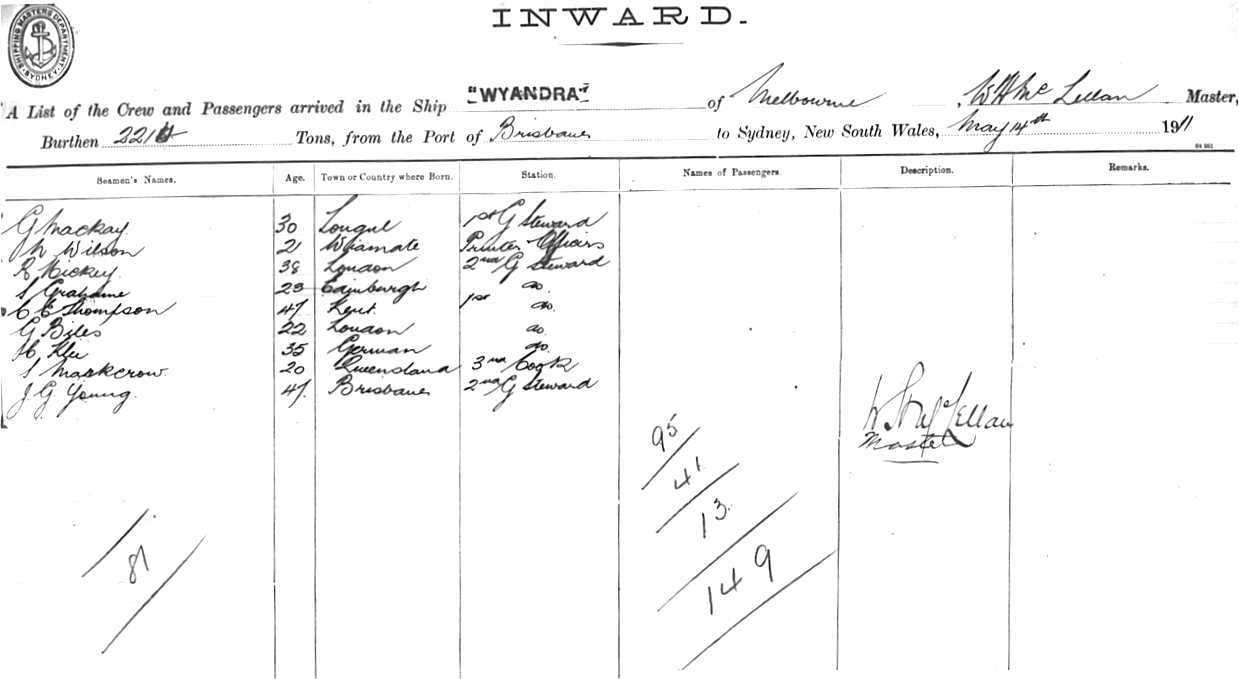 SHIPPING MASTERS DEPARTMENT. SYDNEY.
INWARD.
A List of the Crew and Passengers arrived in the Ship "WYANDRA" of Melbourne W H Mc Lellan Master,
Burthen Tons, from the Port of Brisbane to Sydney, New South Wales, May 14th 1911
Seamen's Names. Age. Town or Country where Born. Station. Names of Passengers. Description. Remarks.
G Mackay 30 1st G Steward
Wilson 21 Printer Officers
Hickey 38 London 2nd G Steward
S Grahame 23 Edinburgh do
C E Thompson 47 Kent 1st do
G Biles 22 London do
H Klie 35 German do
S Mackcrow 20 Queensland 3rd Cook
J G Young 47 Brisbane 2nd G Steward
W H McLellan
Master
95
41
13
149
81